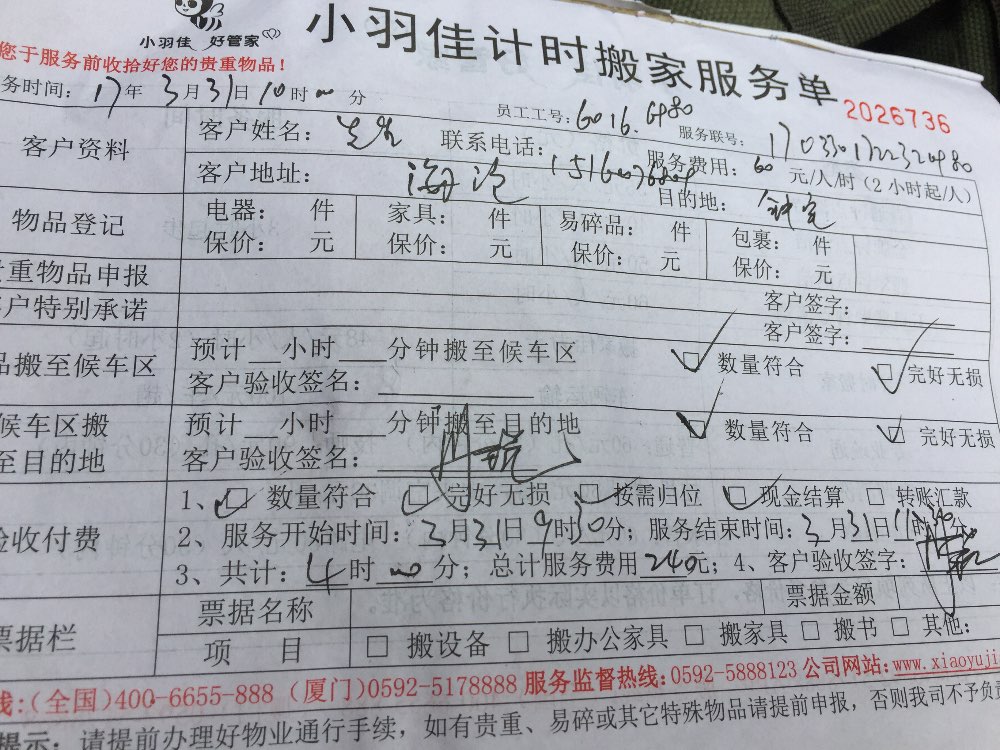 小羽佳 好管家
小羽佳计时搬家服务单
您于服务前收拾好您的贵重物品！
2026736
务时间：17年3月31日10时00分
员工工号：6016. 6980
服务联号：
客户资料
客户姓名：
联系电话：
服务费用：60元/人/时（2小时起/人）
客户地址：海沧
目的地：
物品登记
电器： 件 家具： 件 易碎品： 件 包裹： 件
保价： 元 保价： 元 保价： 元 保价： 元
贵重物品申报
客户签字：
客户特别承诺
客户签字：
品搬至候车区
预计 小时 分钟搬至候车区
☑ 数量符合 ☑ 完好无损
客户验收签名：
候车区搬
至目的地
预计 小时 分钟搬至目的地
☑ 数量符合 ☑ 完好无损
客户验收签名：
验收付费
1、☑ 数量符合 ☑ 完好无损 ☑ 按需归位 ☑ 现金结算 □ 转账汇款
2、服务开始时间：3月31日9时30分；服务结束时间：3月31日11时30分
3、共计：4时00分；总计服务费用240元；4、客户验收签字：
票据栏
票据名称 票据金额
项 目 □ 搬设备 □ 搬办公家具 □ 搬家具 □ 搬书 □ 其他：
线：(全国)400-6655-888 (厦门)0592-5178888 服务监督热线：0592-5888123 公司网站：www.xiaoyuji
提示：请提前办理好物业通行手续，如有贵重、易碎或其它特殊物品请提前申报，否则我司不予负责